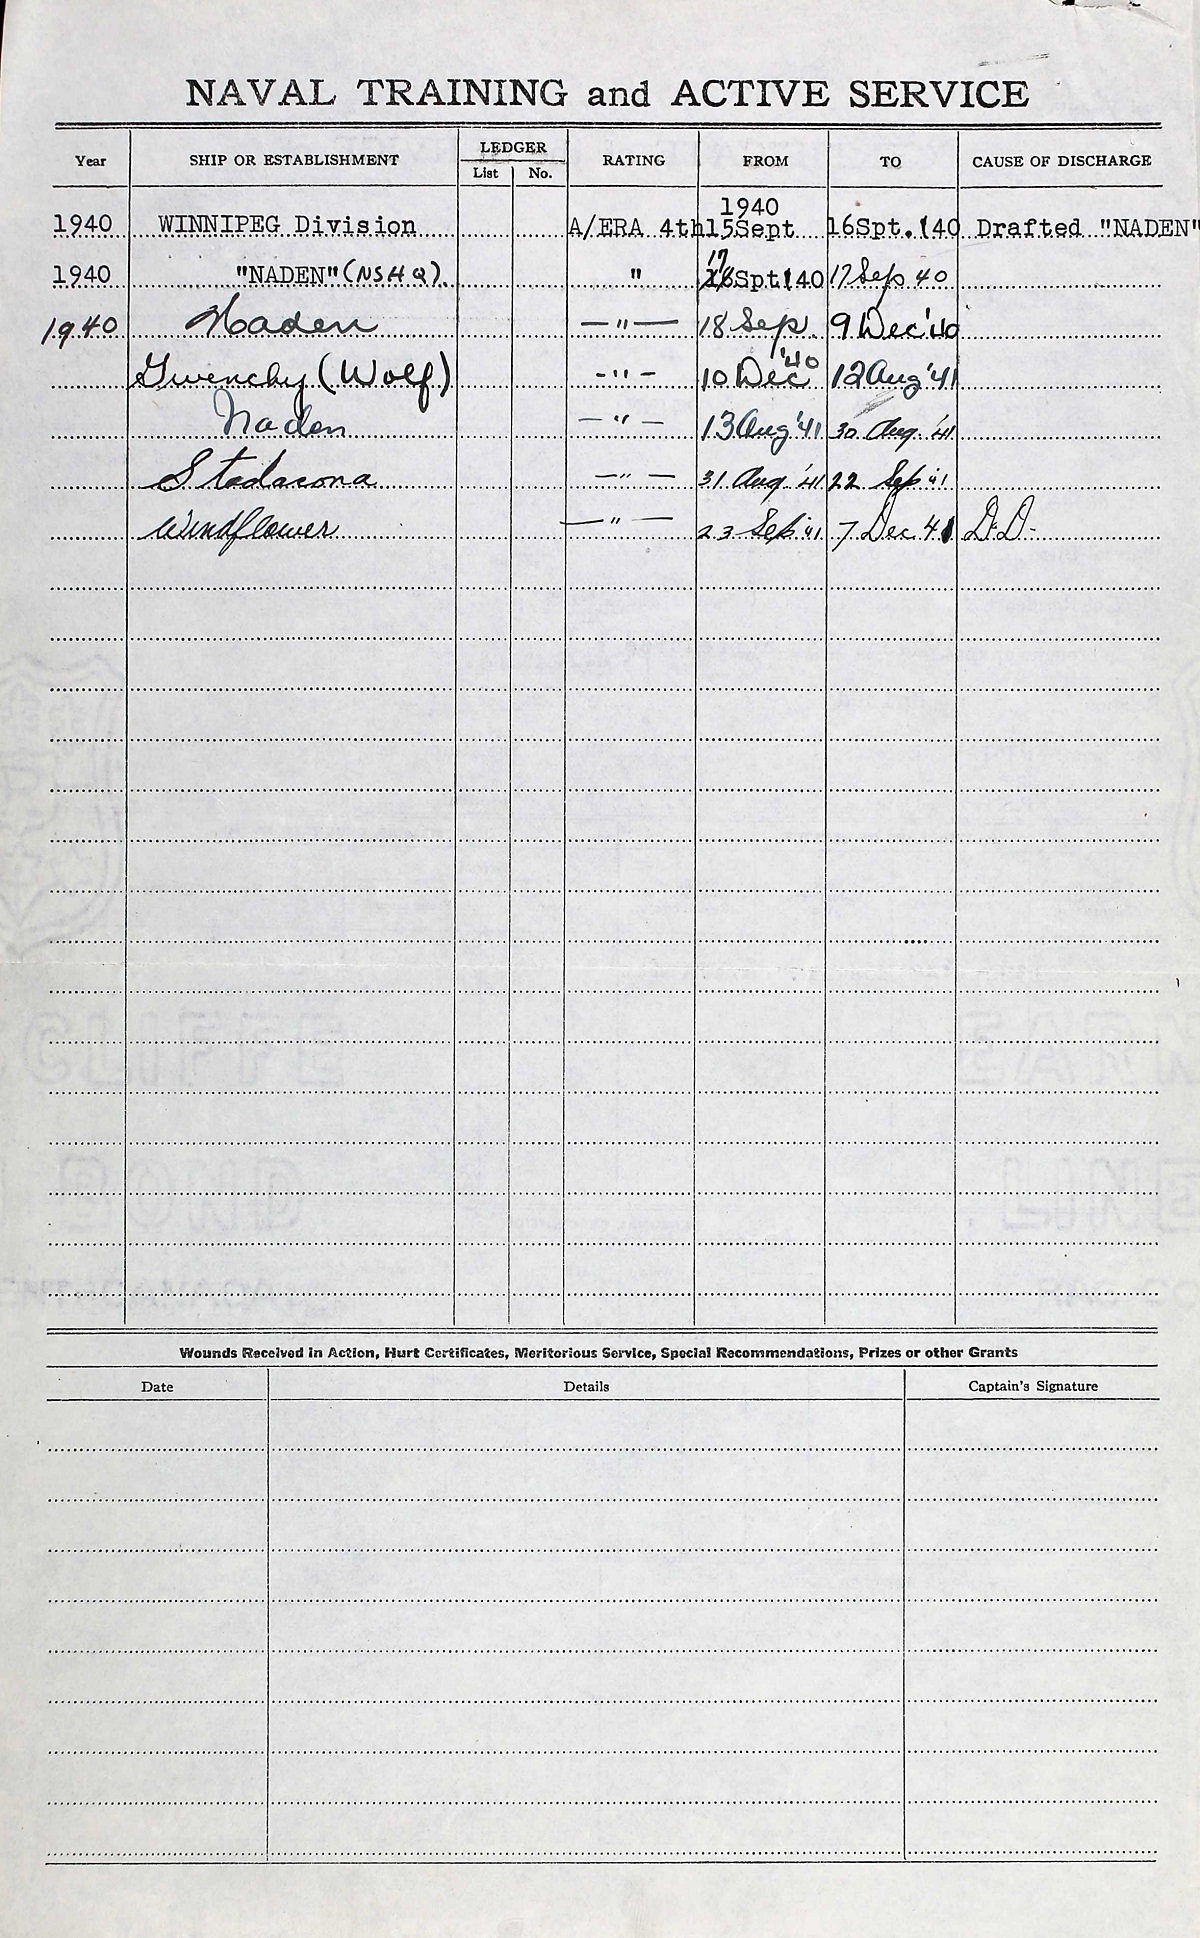 NAVAL TRAINING and ACTIVE SERVICE
Year SHIP OR ESTABLISHMENT LEDGER List No. RATING FROM TO CAUSE OF DISCHARGE
1940
1940 WINNIPEG Division A/ERA 4th 15Sept 16Spt.'40 Drafted "NADEN"
17
1940 "NADEN" (NSHQ) " Spt'40 17 Sep 40
1940 Naden —"— 18 Sep. 9 Dec '40
Givenchy (Wolf) -"- 10 Dec '40 12 Aug '41
Naden —"— 13 Aug '41 30 Aug. '41
Stadacona —"— 31 Aug '41 22 Sep '41
Windflower —"— 23 Sep '41 7 Dec 41 D.D.
Wounds Received in Action, Hurt Certificates, Meritorious Service, Special Recommendations, Prizes or other Grants
Date Details Captain's Signature